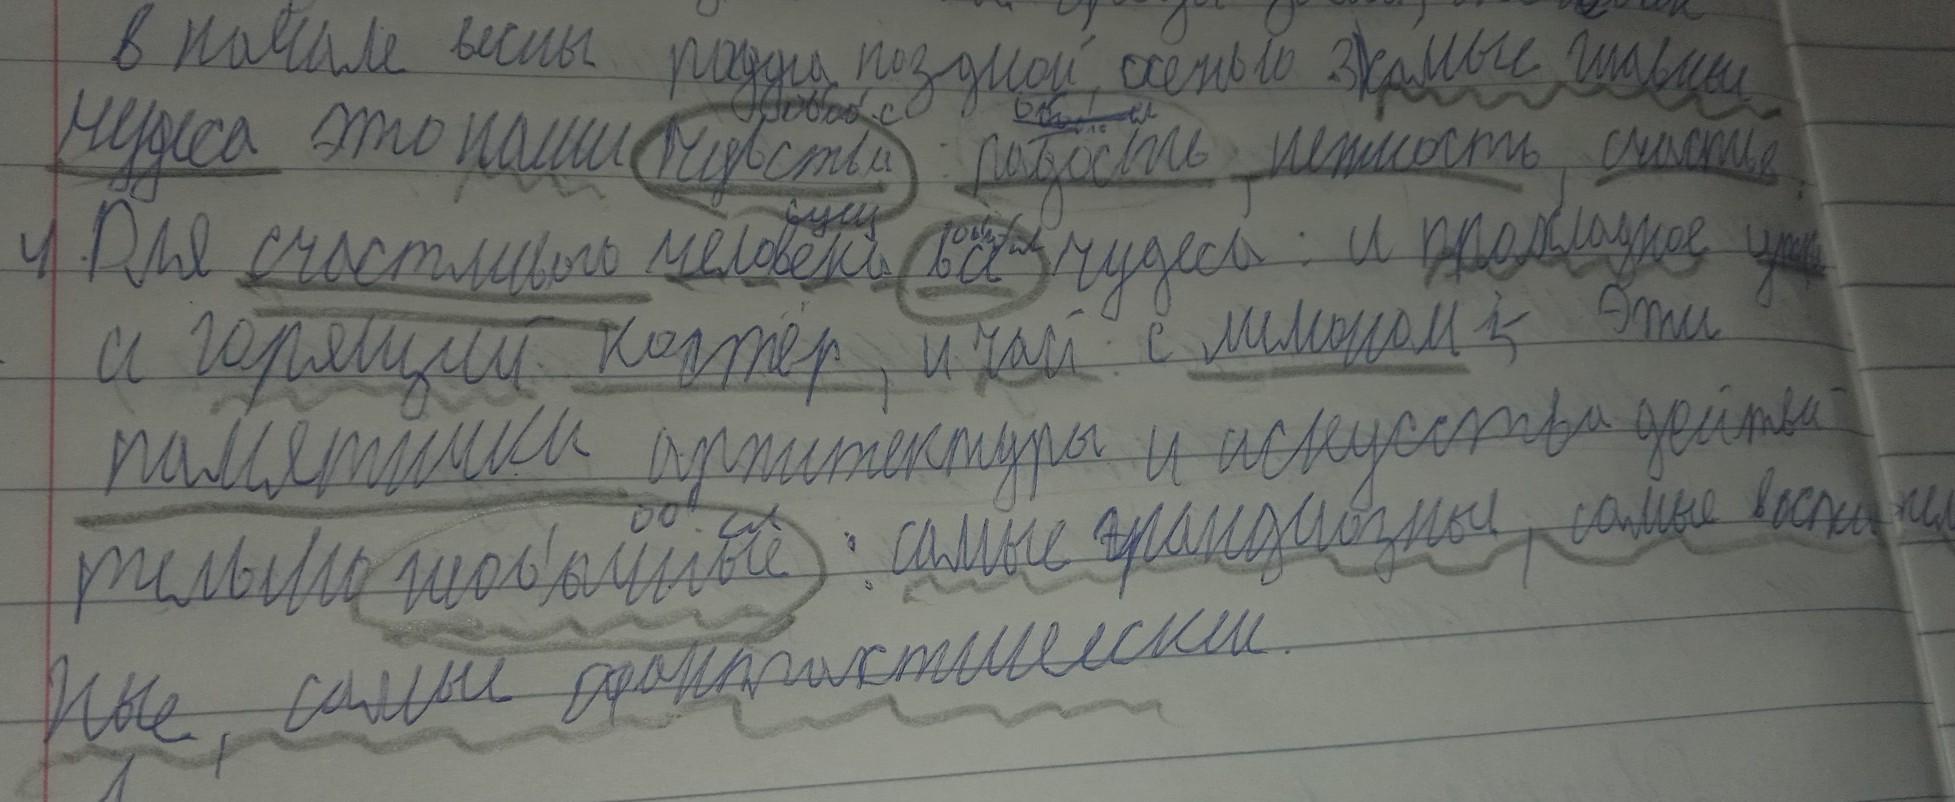 в начале весны поздной осенью 3 самые главные
чудеса это наши чувства : радость, нежность, счастье.
4. Для счастливого человека всё чудеса : и прохладное утро
и горящий костёр, и чай с лимоном 5 Эти
памятники архитектуры и искусства действи
тельно необычные : самые грандиозные, самые воспитан
ные, самые фантастические.